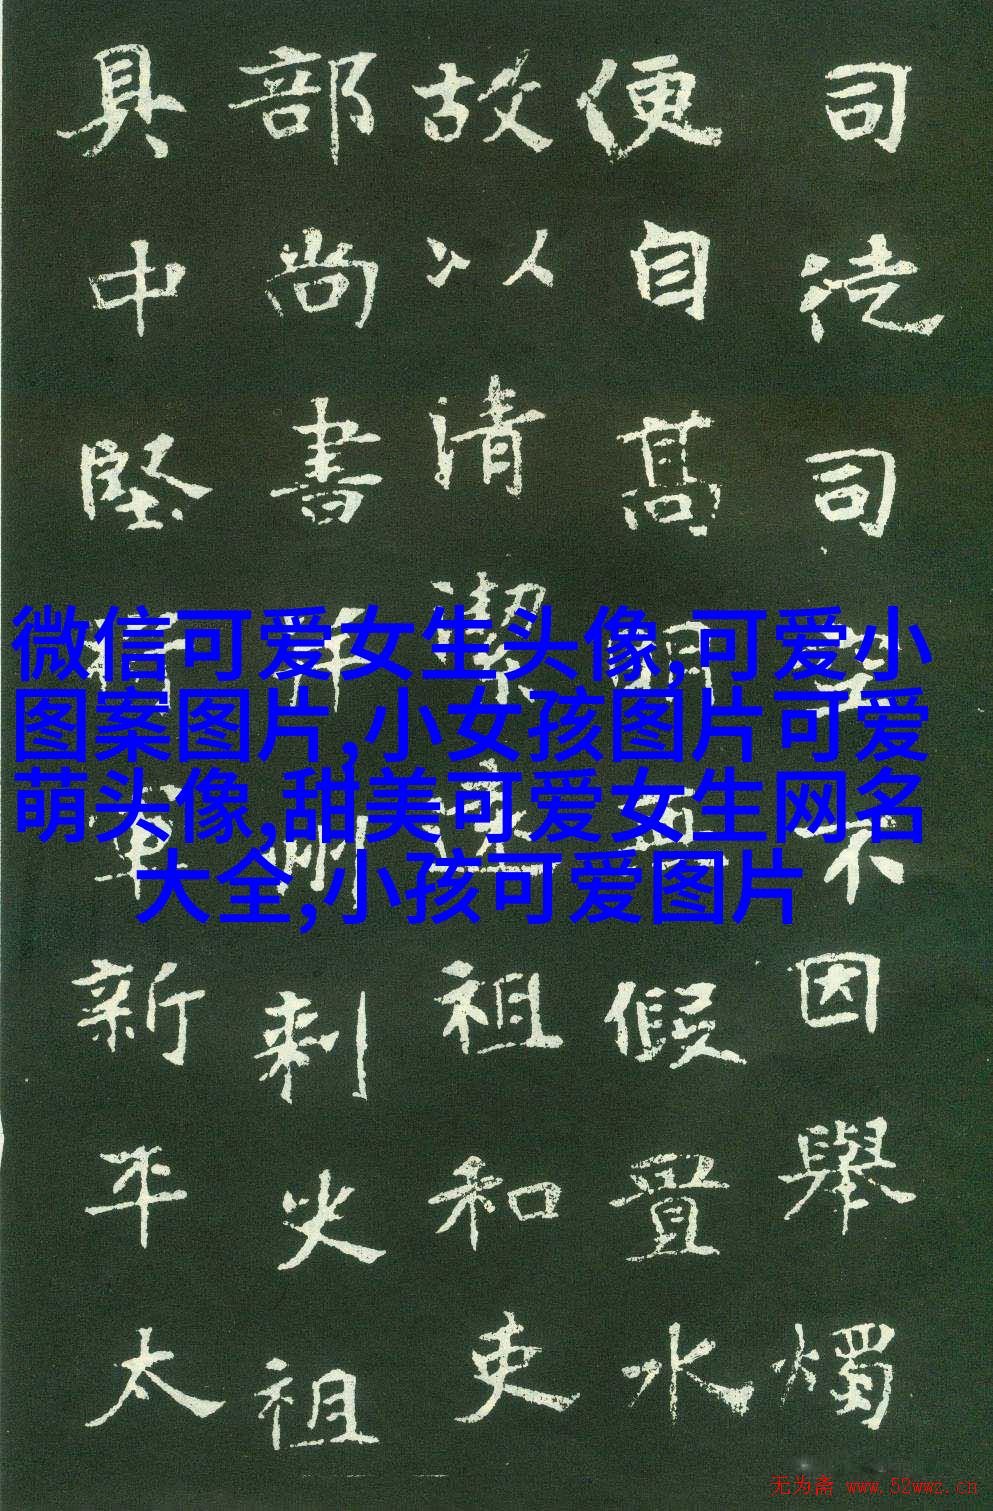 司徒司不因舉燭
便自高假置水
故以清潔祖和吏
部尚書州刺史祖
具中堅軍新平太
微信可爱女生头像,可爱小
图案图片,小女孩图片可爱
萌头像,甜美可爱女生网名
大全,小孩可爱图片
无为斋 www.52wwz.cn